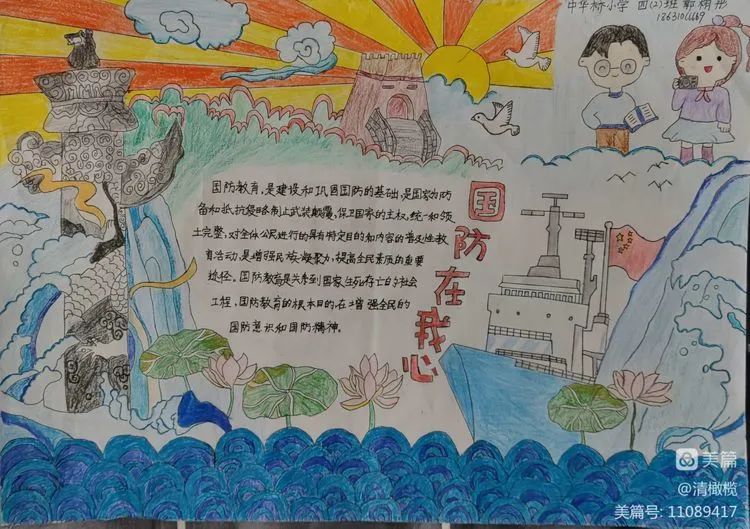 中华桥小学 四(2)班 郭栩彤
18631011169
国防教育，是建设和巩固国防的基础，是国家为防
备和抵抗侵略，制止武装颠覆，保卫国家的主权，统一和领
土完整，对全体公民进行的具有特定目的和内容的普及性教
育活动，是增强民族凝聚力，提高全民素质的重要
途径。国防教育是关系到国家生死存亡的社会
工程，国防教育的根本目的，在增强全民的
国防意识和国防精神。
国防在我心
美篇
@清橄榄
美篇号: 11089417